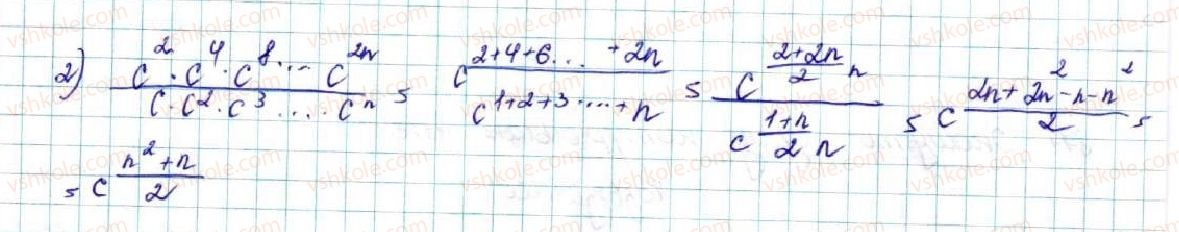 2) (c² · c⁴ · c⁸ · ... c²ⁿ) / (c · c² · c³ · ... · cⁿ) = c^(2+4+6...+2n) / c^(1+2+3...+n) = c^((2+2n)/2 n) / c^((1+n)/2 n) = c^((2n+2n²-n-n²)/2) =
= c^((n²+n)/2)